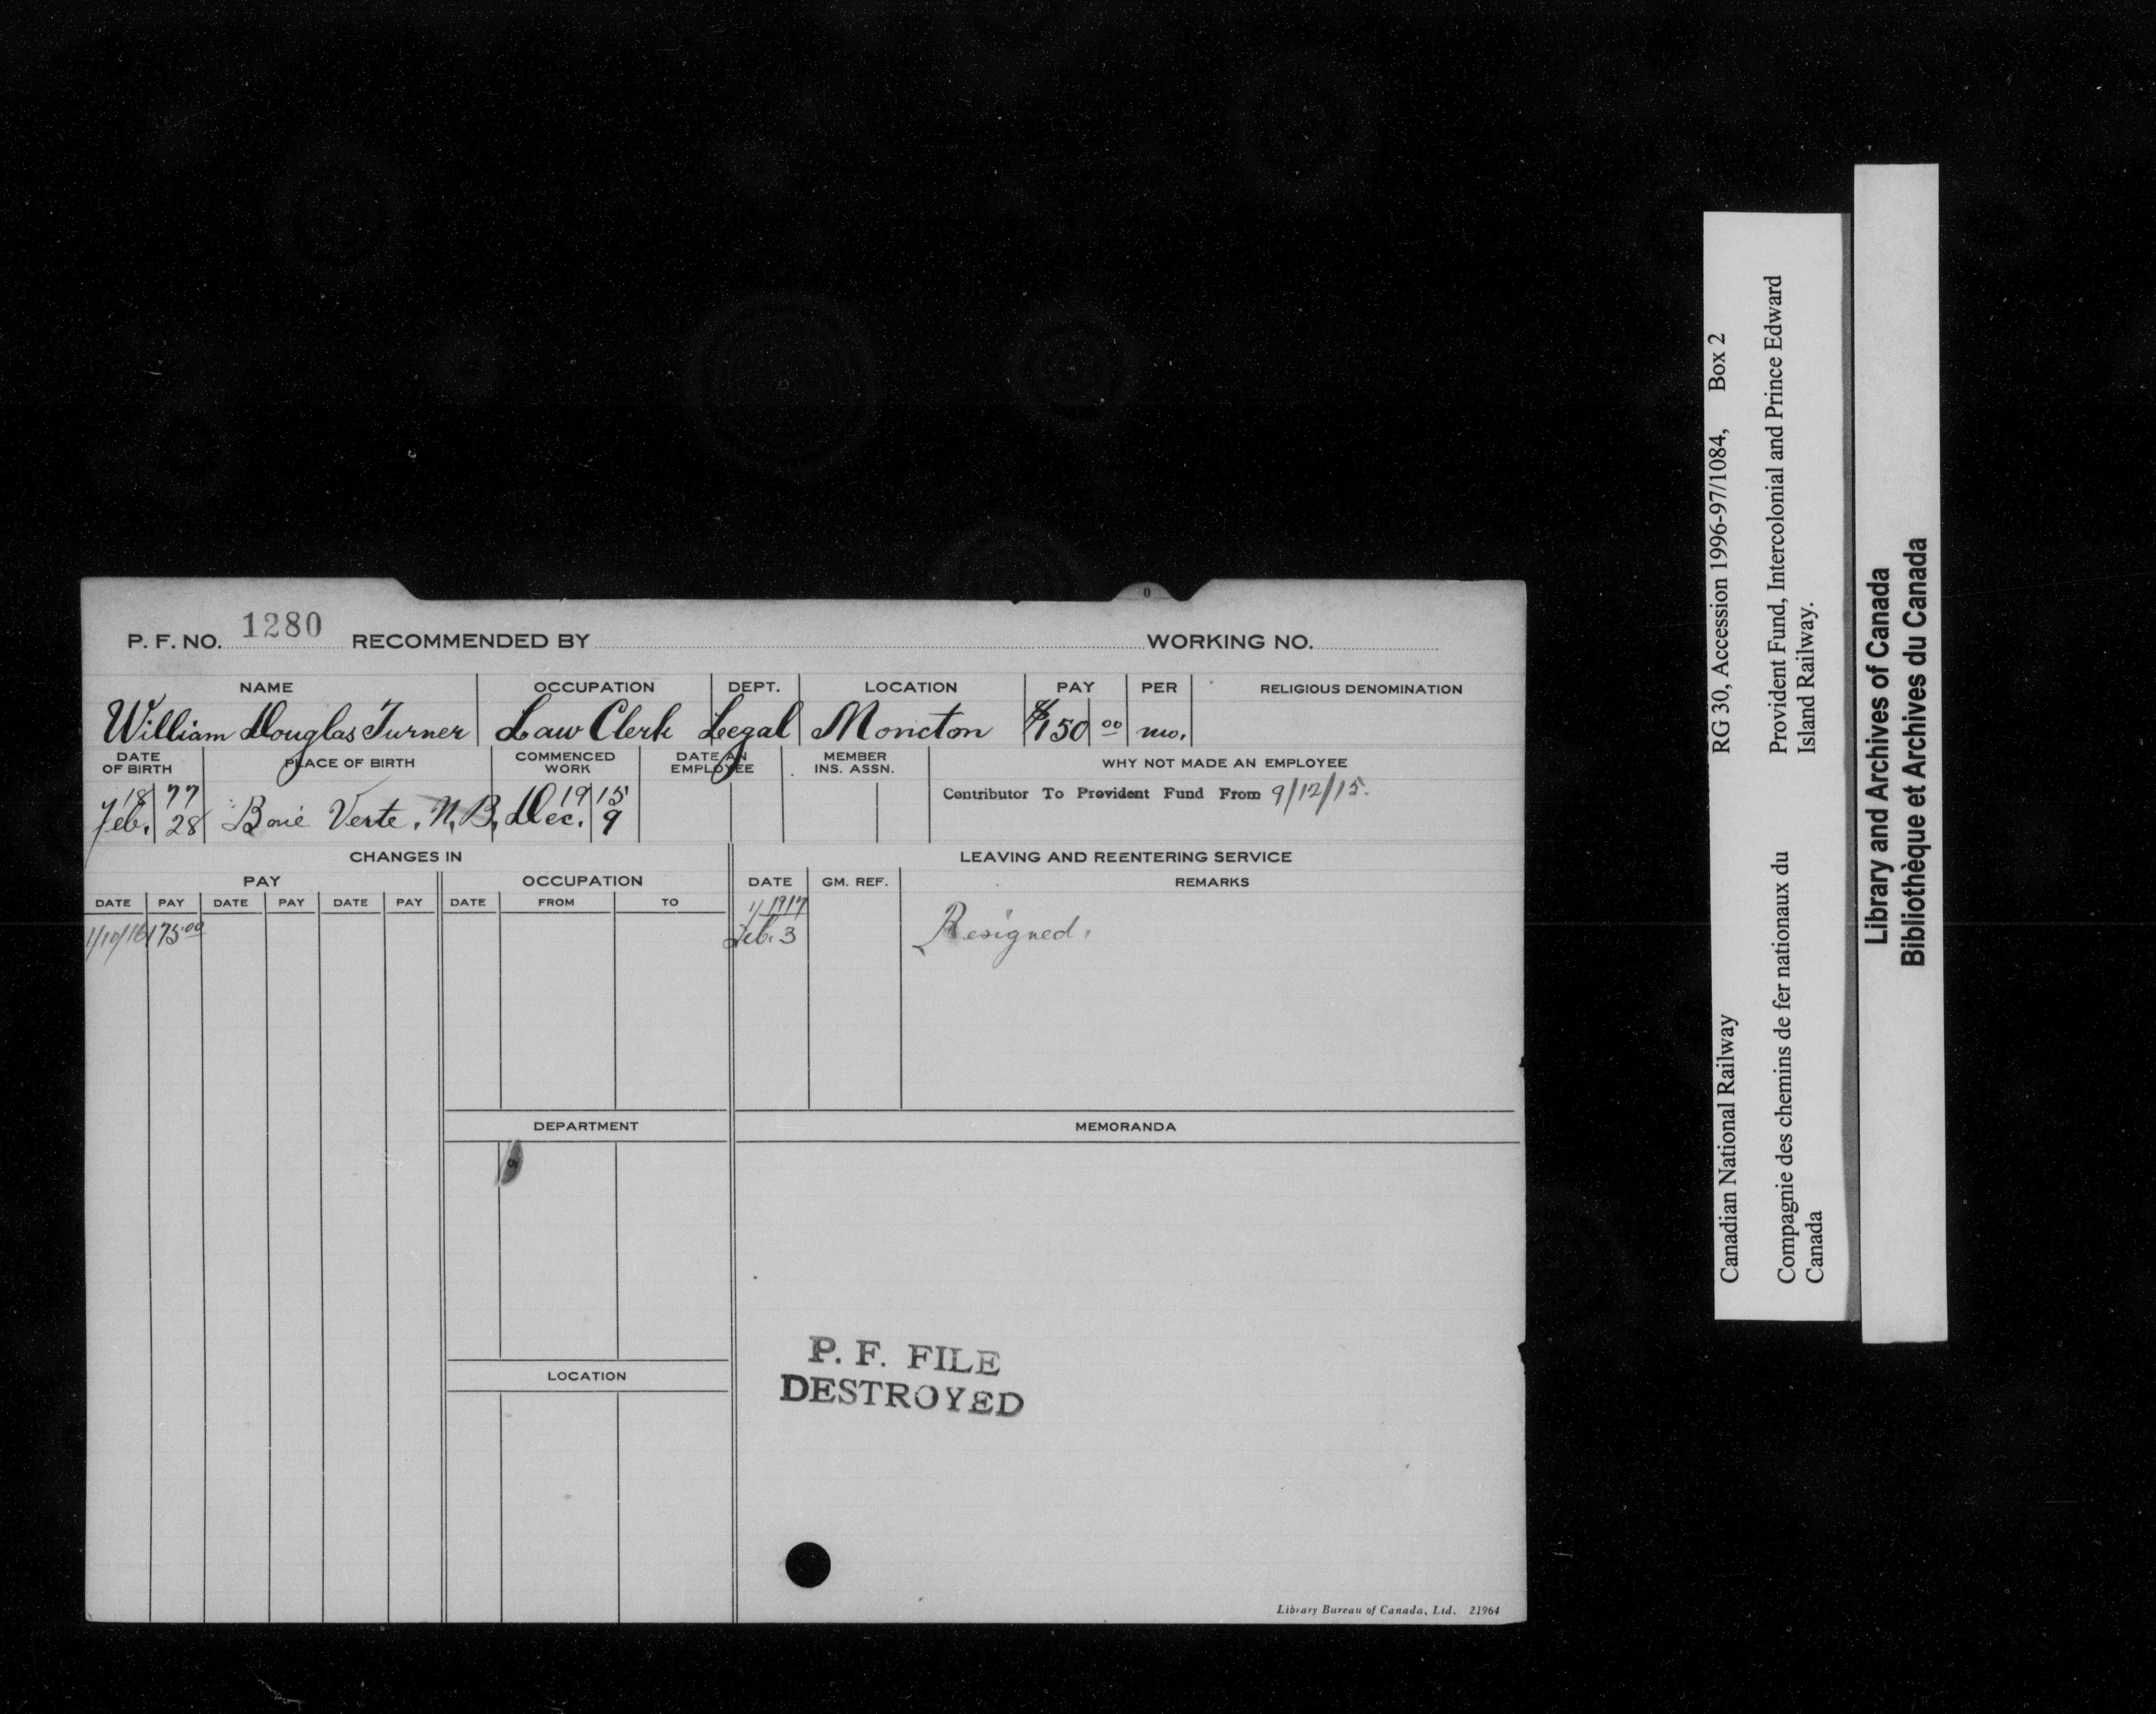 P. F. NO. 1280 RECOMMENDED BY WORKING NO.
NAME OCCUPATION DEPT. LOCATION PAY PER RELIGIOUS DENOMINATION
William Douglas Turner Law Clerk Legal Moncton $150 00 mo.
DATE OF BIRTH PLACE OF BIRTH COMMENCED WORK DATE AN EMPLOYEE MEMBER INS. ASSN. WHY NOT MADE AN EMPLOYEE
18 77 19 15 Contributor To Provident Fund From 9/12/15.
Feb. 28 Baie Verte, N.B. Dec. 9
CHANGES IN LEAVING AND REENTERING SERVICE
PAY OCCUPATION DATE GM. REF. REMARKS
DATE PAY DATE PAY DATE PAY DATE FROM TO
1917
1/10/16 175.00 Feb. 3 Resigned.
DEPARTMENT MEMORANDA
LOCATION
P. F. FILE
DESTROYED
Library Bureau of Canada, Ltd. 21964
Canadian National Railway RG 30, Accession 1996-97/1084, Box 2
Compagnie des chemins de fer nationaux du
Canada
Provident Fund, Intercolonial and Prince Edward
Island Railway.
Library and Archives of Canada
Bibliothèque et Archives du Canada